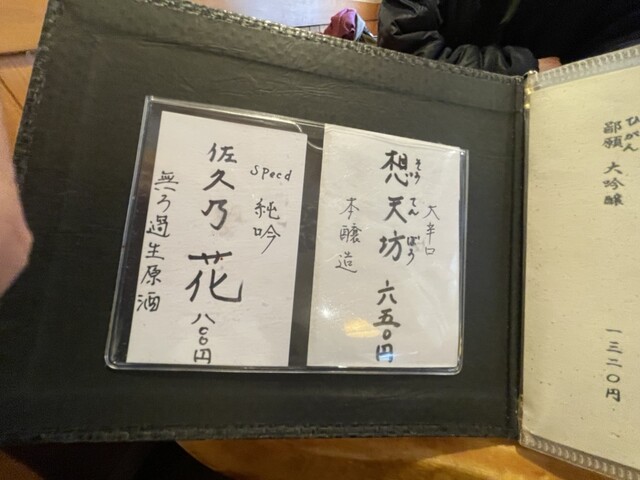 ひがん
鄙願 大吟醸
一三二〇円
大辛口
そう てん ぼう
想天坊 六五〇円
本醸造
Spec d 純吟
佐久乃花 八〇〇円
無ろ過生原酒